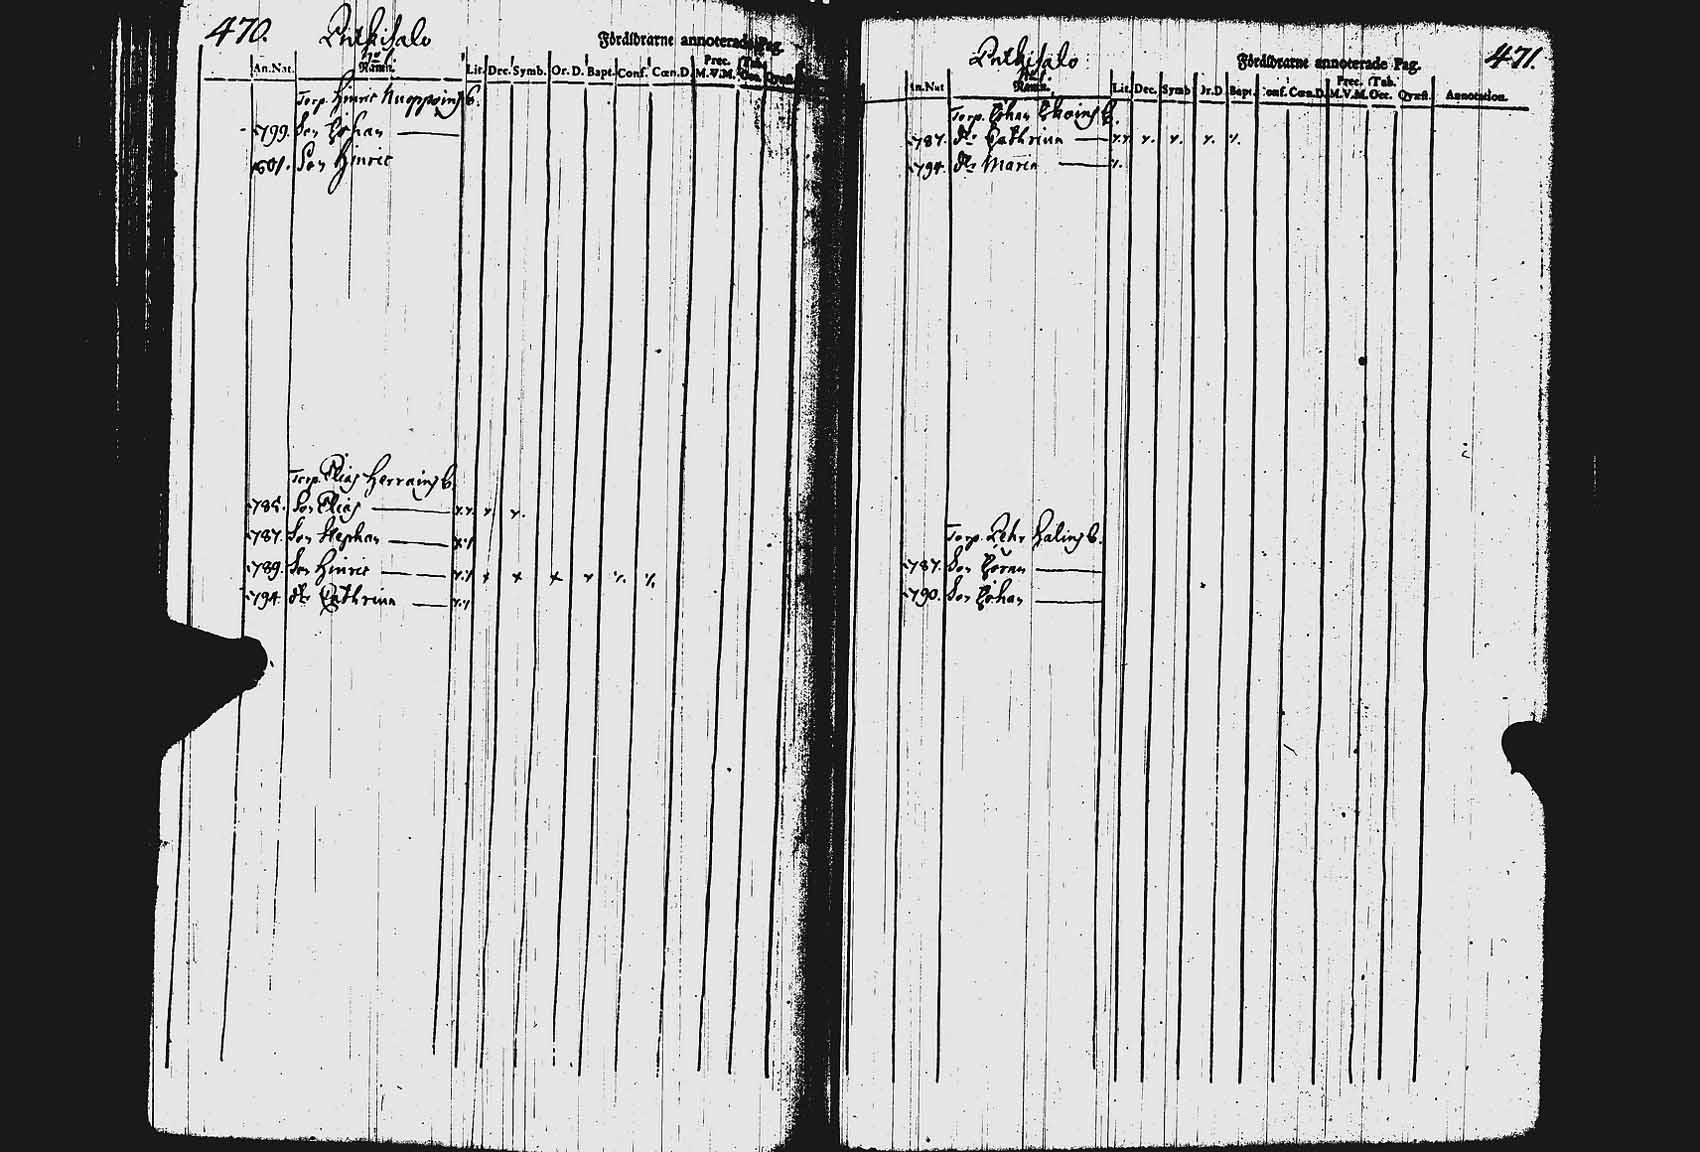 470.
Puthisalo
Föräldrarne annoterade Pag.
An.Nat. Namn. Lit. Dec. Symb. Or.D. Bapt. Conf. Cœn.D. Prec. M.V.M. Tab. Oec. Qvæst.
Torp. Hinric B.
1799. Son Johan
1801. Son Hinric
Torp. Elias Herrains B.
Son Elias
1787. Son Stephan
1789. Son Hinric
1794. dr Cathrina
471.
Puthisalo
Föräldrarne annoterade Pag.
An.Nat. Namn. Lit. Dec. Symb. Or.D. Bapt. Conf. Cœn.D. Prec. M.V.M. Tab. Oec. Qvæst. Annotation.
Torp. Johan B.
1787. dr Cathrina
1794. dr Maria
Torp. Pehr B.
1787. Son Göran
1790. Son Johan